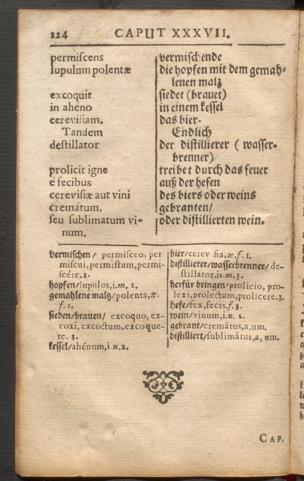 124 CAPUT XXXVII.
permiscens
lupulum polentæ
excoquit
in aheno
cerevisiam.
Tandem
destillator
prolicit igne
e fecibus
cerevisiæ aut vini
crematum,
seu sublimatum vi-
num.
vermischende
die hopfen mit dem gemah-
lenen maltz
siedet (brauet)
in einem kessel
das bier.
Endlich
der distillierer (wasser-
brenner)
treibet durch das feuer
auß der hefen
des biers oder weins
gebranten/
oder distillierten wein.
vermischen/ permisceo, per
miscui, permistum, permi-
scére. 2.
hopfen/lupulus, i.m. 2.
gemahlene maltz/polenta, æ.
f. 1.
sieden/brauen/ excoquo, ex-
coxi, excoctum, excoque-
re. 3.
kessel/ahénum, i n. 2.
bier/cerevisia, æ. f. 1.
distillierer/wasserbrenner/de-
stillator. is. m. 3.
herfür bringen/prolicio, pro-
lexi, prolectum, prolicere. 3.
hefe/fex, fecis, f. 3.
wein/vinum, i. n. 2.
gebrant/cremátus, a, um.
distilliert/sublimátus, a, um.
CAP.